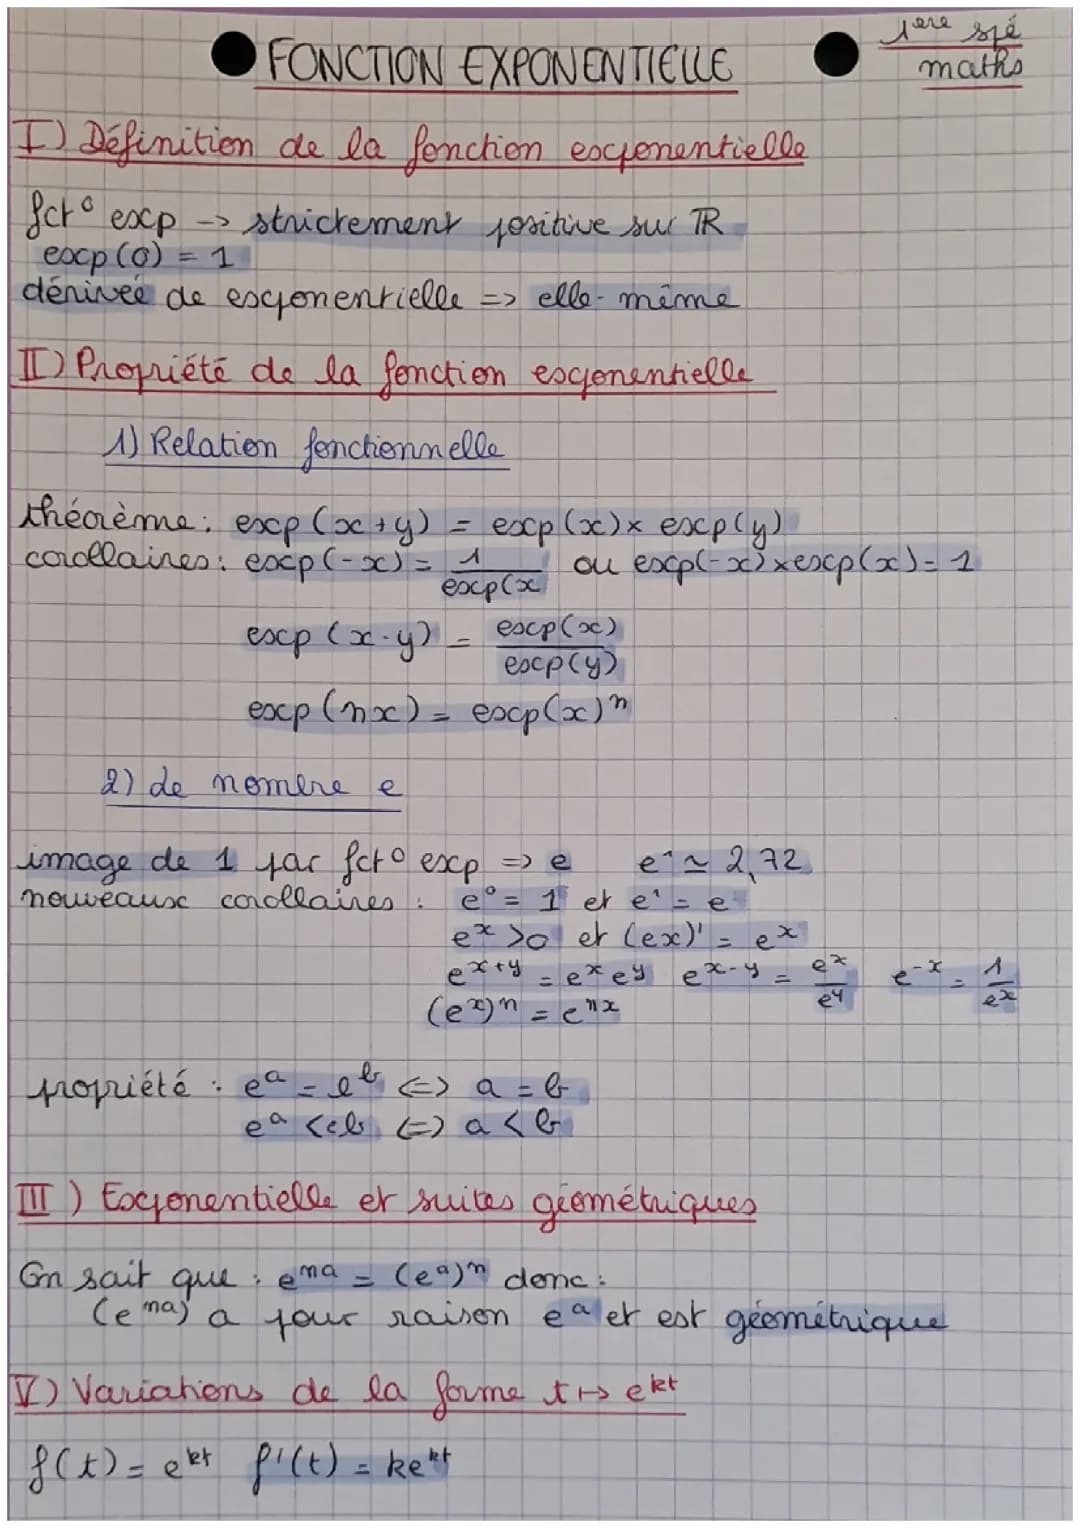 1ere spé
maths
FONCTION EXPONENTIELLE
I) Définition de la fonction exponentielle
fct° exp -> strictement positive sur ℝ
exp(0) = 1
dérivée de exponentielle => elle-même
II) Propriété de la fonction exponentielle
1) Relation fonctionnelle
théorème : exp(x+y) = exp(x) × exp(y)
corollaires : exp(-x) = 1/exp(x ou exp(-x) × exp(x) = 1
exp(x-y) = exp(x)/exp(y)
exp(nx) = exp(x)ⁿ
2) de nombre e
image de 1 par fct° exp => e e¹ ≃ 2,72
nouveaux corollaires : e⁰ = 1 et e¹ = e
eˣ >0 et (ex)' = eˣ
eˣ⁺ʸ = eˣ eʸ eˣ⁻ʸ = eˣ/eʸ e⁻ˣ = 1/eˣ
(eˣ)ⁿ = eⁿˣ
propriété : eᵃ = eᵇ <=> a = b
eᵃ < eb <=> a < b
III) Exponentielle et suites géométriques
On sait que : eⁿᵃ = (eᵃ)ⁿ donc :
(eⁿᵃ) a pour raison eᵃ et est géométrique
V) Variations de la forme t ↦ eᵏᵗ
f(t) = eᵏᵗ f'(t) = keᵏᵗ